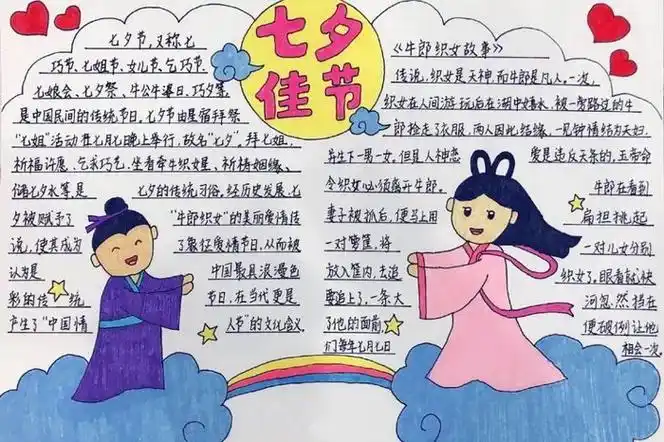 七夕
佳节
七夕节,又称七
巧节、七姐节、女儿节、乞巧节
七娘会、七夕祭、牛公牛婆日、巧夕等,
是中国民间的传统节日,七夕节由星宿拜祭
“七姐”活动在七月七晚上举行,故名“七夕”,拜七姐,
祈福许愿、乞求巧艺、坐看牵牛织女星、祈祷姻缘、
储七夕水等,是 七夕的传统习俗,经历史发展,七
夕被赋予了 “牛郎织女”的美丽爱情传
说,使其成为 了象征爱情节日,从而被
认为是 中国最具浪漫色
彩的传统 节日,在当代更是
产生了“中国情 人节”的文化含义
《牛郎织女故事》
传说,织女是天神而牛郎是凡人,一次,
织女在人间游玩后在湖中嬉水,被一旁路过的牛
郎捡走了衣服,两人因此结缘,一见钟情结为夫妇,
并生下一男一女,但是人神恋 爱是违反天条的,玉帝命
令织女必须离开牛郎, 牛郎在看到
妻子被抓后,便马上用 扁担挑起
一对箩筐,将 一对儿女分别
放入筐内,去追 织女了,眼看就快
要追上了,一条大 河忽然挡在
了他的面前 便破例让他
们每年七月七日 相会一次